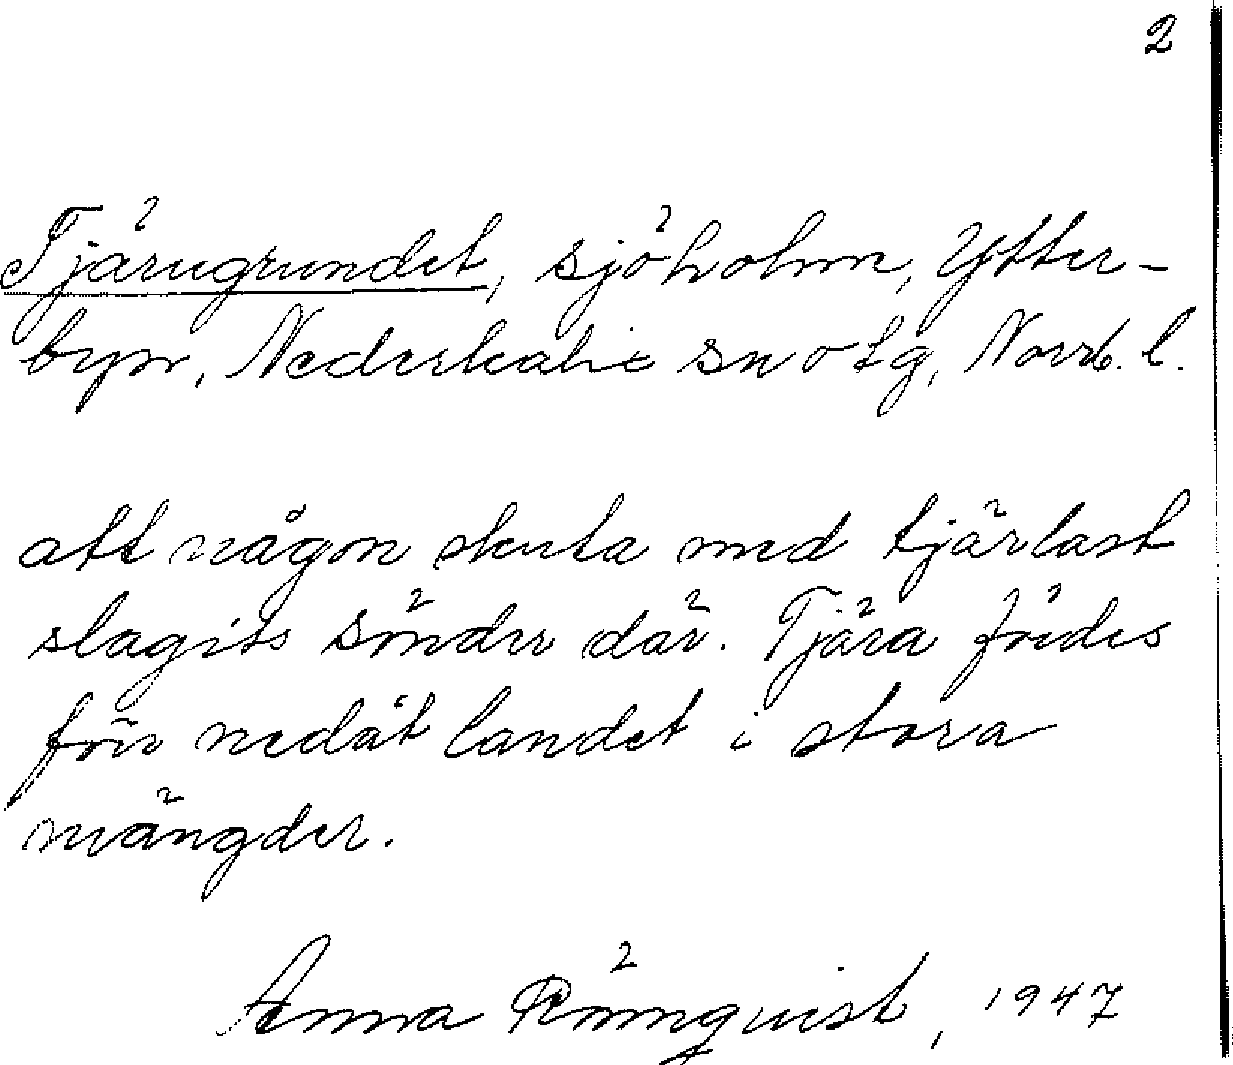 2
Tjärugrundet, sjöholm, Ytter-
byn, Nederkalix sn o tg, Norrb. l.
att någon skuta med tjärlast
slagits sönder där. Tjära fördes
förr nedåt landet i stora
mängder.
Anna Rönnquist, 1947